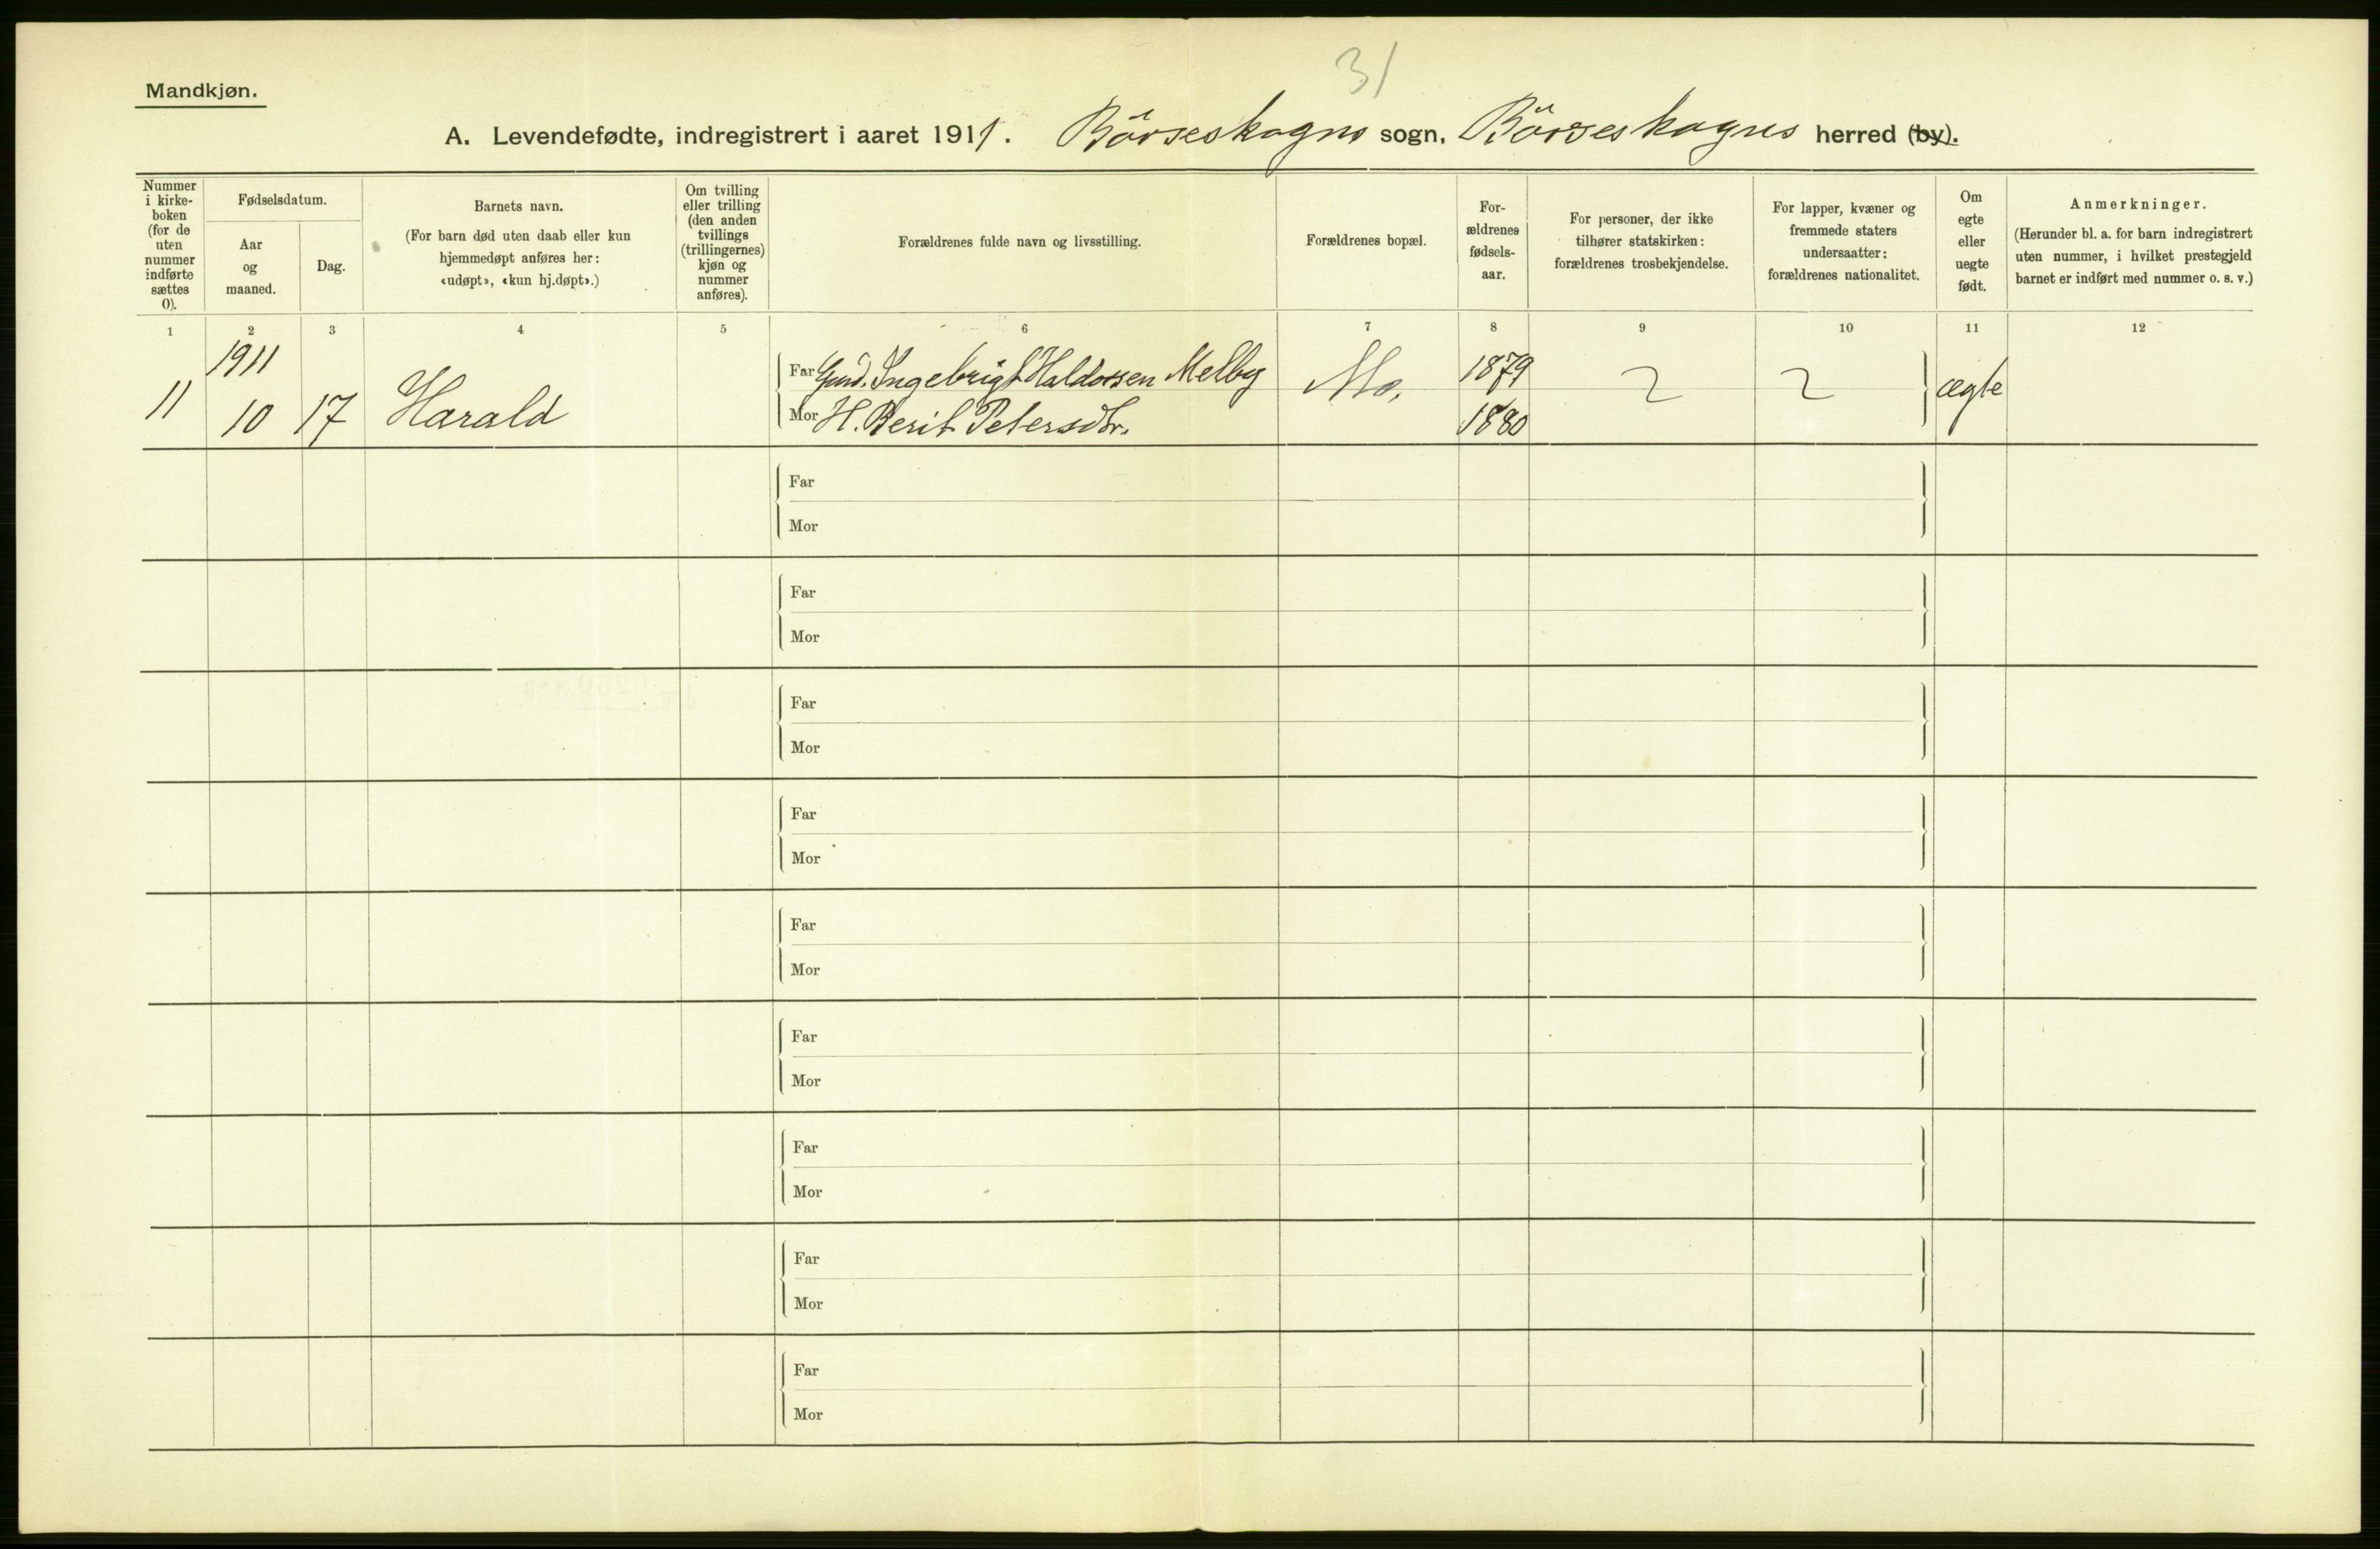 31
Mandkjøn.
A. Levendefødte, indregistrert i aaret 1911. Börseskogns sogn, Börseskogns herred (by).
Nummer
i kirke-
boken
(for de
uten
nummer
indførte
sættes
0).
Fødselsdatum.
Aar
og
maaned.
Dag.
Barnets navn.
(For barn død uten daab eller kun
hjemmedøpt anføres her:
«udøpt», «kun hj.døpt».)
Om tvilling
eller trilling
(den anden
tvillings
(trillingernes)
kjøn og
nummer
anføres).
Forældrenes fulde navn og livsstilling.
Forældrenes bopæl.
For-
ældrenes
fødsels-
aar.
For personer, der ikke
tilhører statskirken:
forældrenes trosbekjendelse.
For lapper, kvæner og
fremmede staters
undersaatter:
forældrenes nationalitet.
Om
egte
eller
uegte
født.
Anmerkninger.
(Herunder bl. a. for barn indregistrert
uten nummer, i hvilket prestegjeld
barnet er indført med nummer o. s. v.)
1 2 3 4 5 6 7 8 9 10 11 12
1911
Far Gmd. Ingebrigt Haldorsen Melby Mo. 1879
11 10 17 Harald ægte
Mor H. Berit Petersdtr. 1880
Far
Mor
Far
Mor
Far
Mor
Far
Mor
Far
Mor
Far
Mor
Far
Mor
Far
Mor
Far
Mor